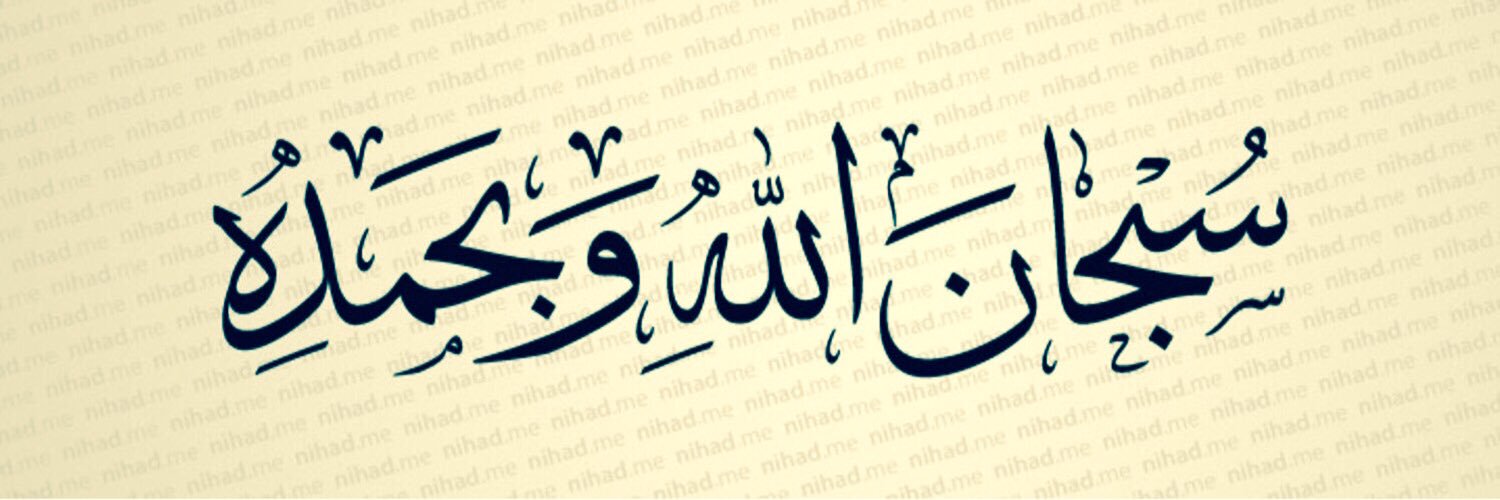 سُبْحَانَ اللّٰهِ وَبِحَمْدِهِ
nihad.me